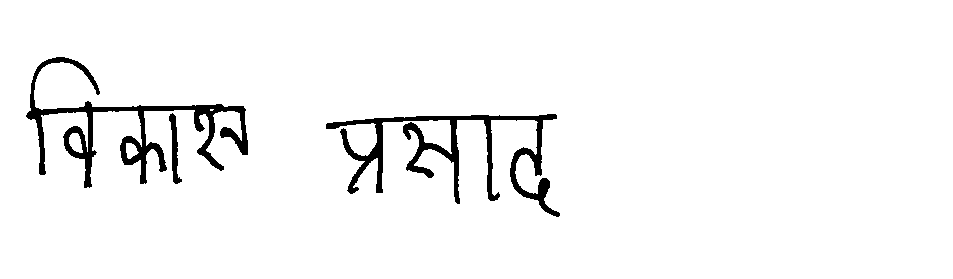 विकाश प्रसाद